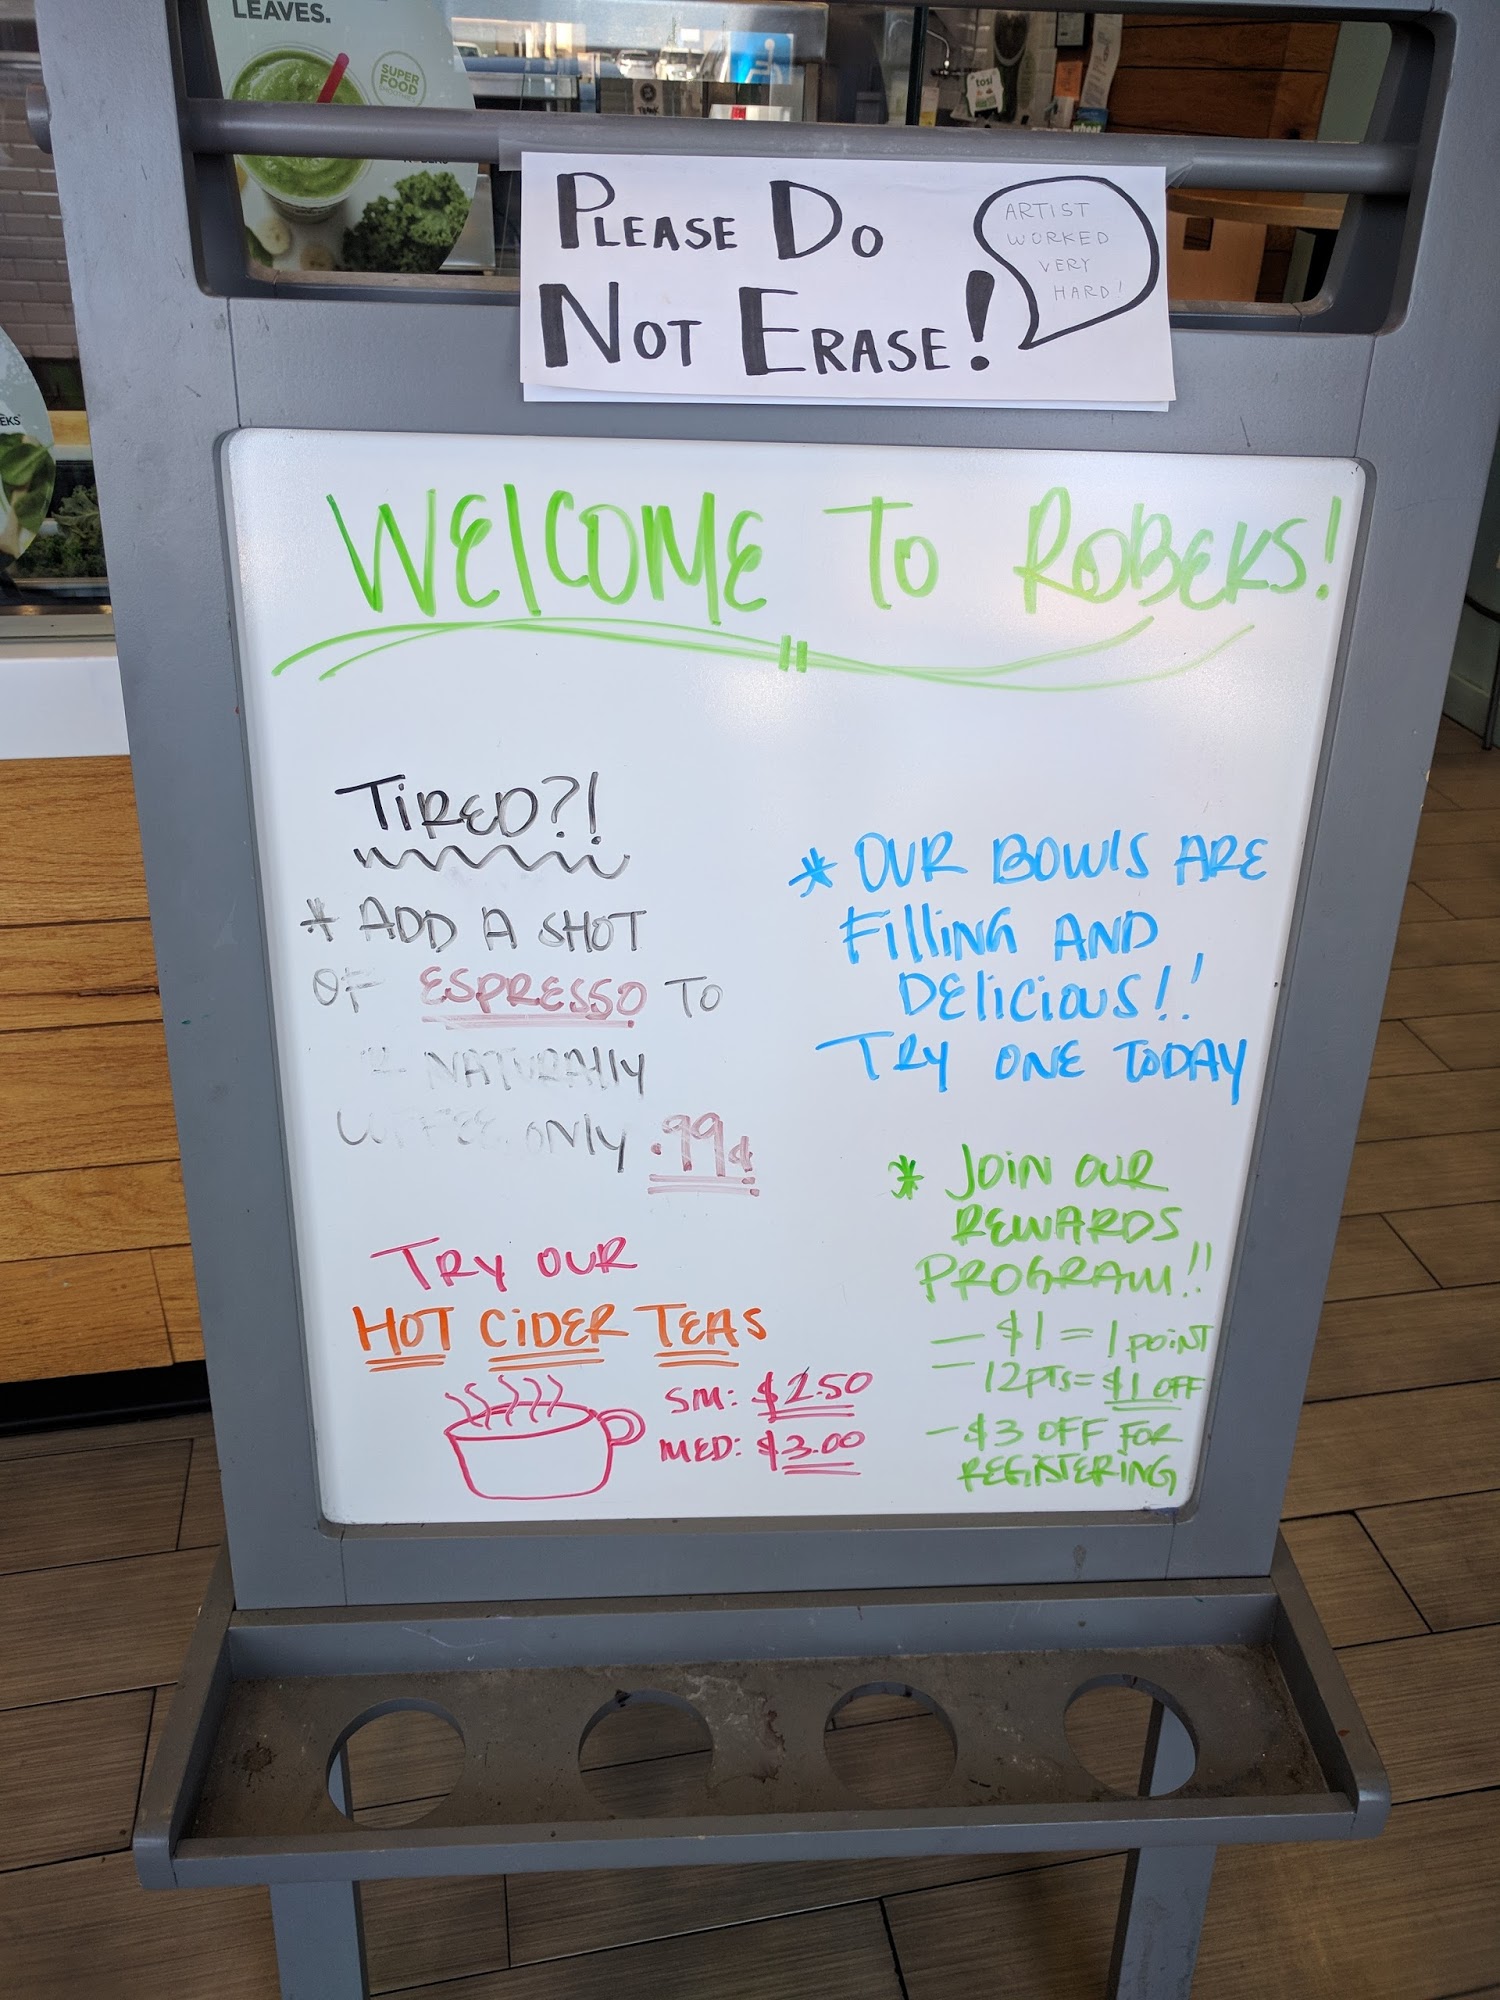 LEAVES.
SUPER
FOOD
tosi
EKS
PLEASE DO
NOT ERASE!
ARTIST
WORKED
VERY
HARD!
WELCOME TO ROBEKS!
TIRED?!
* ADD A SHOT
OF ESPRESSO TO
NATURALLY
COFFEE, ONLY .99¢
TRY OUR
HOT CIDER TEAS
SM: $2.50
MED: $3.00
* OUR BOWLS ARE
FILLING AND
DELICIOUS!!
TRY ONE TODAY
* JOIN OUR
REWARDS
PROGRAM!!
- $1 = 1 POINT
- 12PTS = $1 OFF
- $3 OFF FOR
REGISTERING